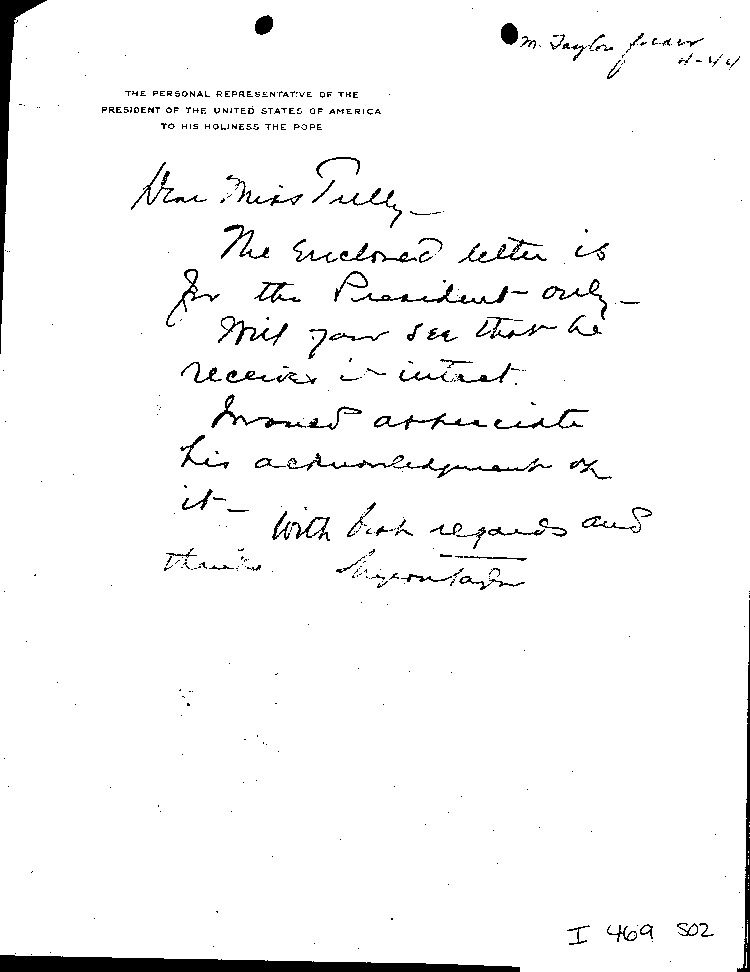 M. Taylor folder
4-44
THE PERSONAL REPRESENTATIVE OF THE
PRESIDENT OF THE UNITED STATES OF AMERICA
TO HIS HOLINESS THE POPE
Dear Miss Tully—
The enclosed letter is
for the President only—
Will you see that he
receives it intact.
I would appreciate
his acknowledgment of
it—
With best regards and
thanks Myron Taylor
I 469 S02